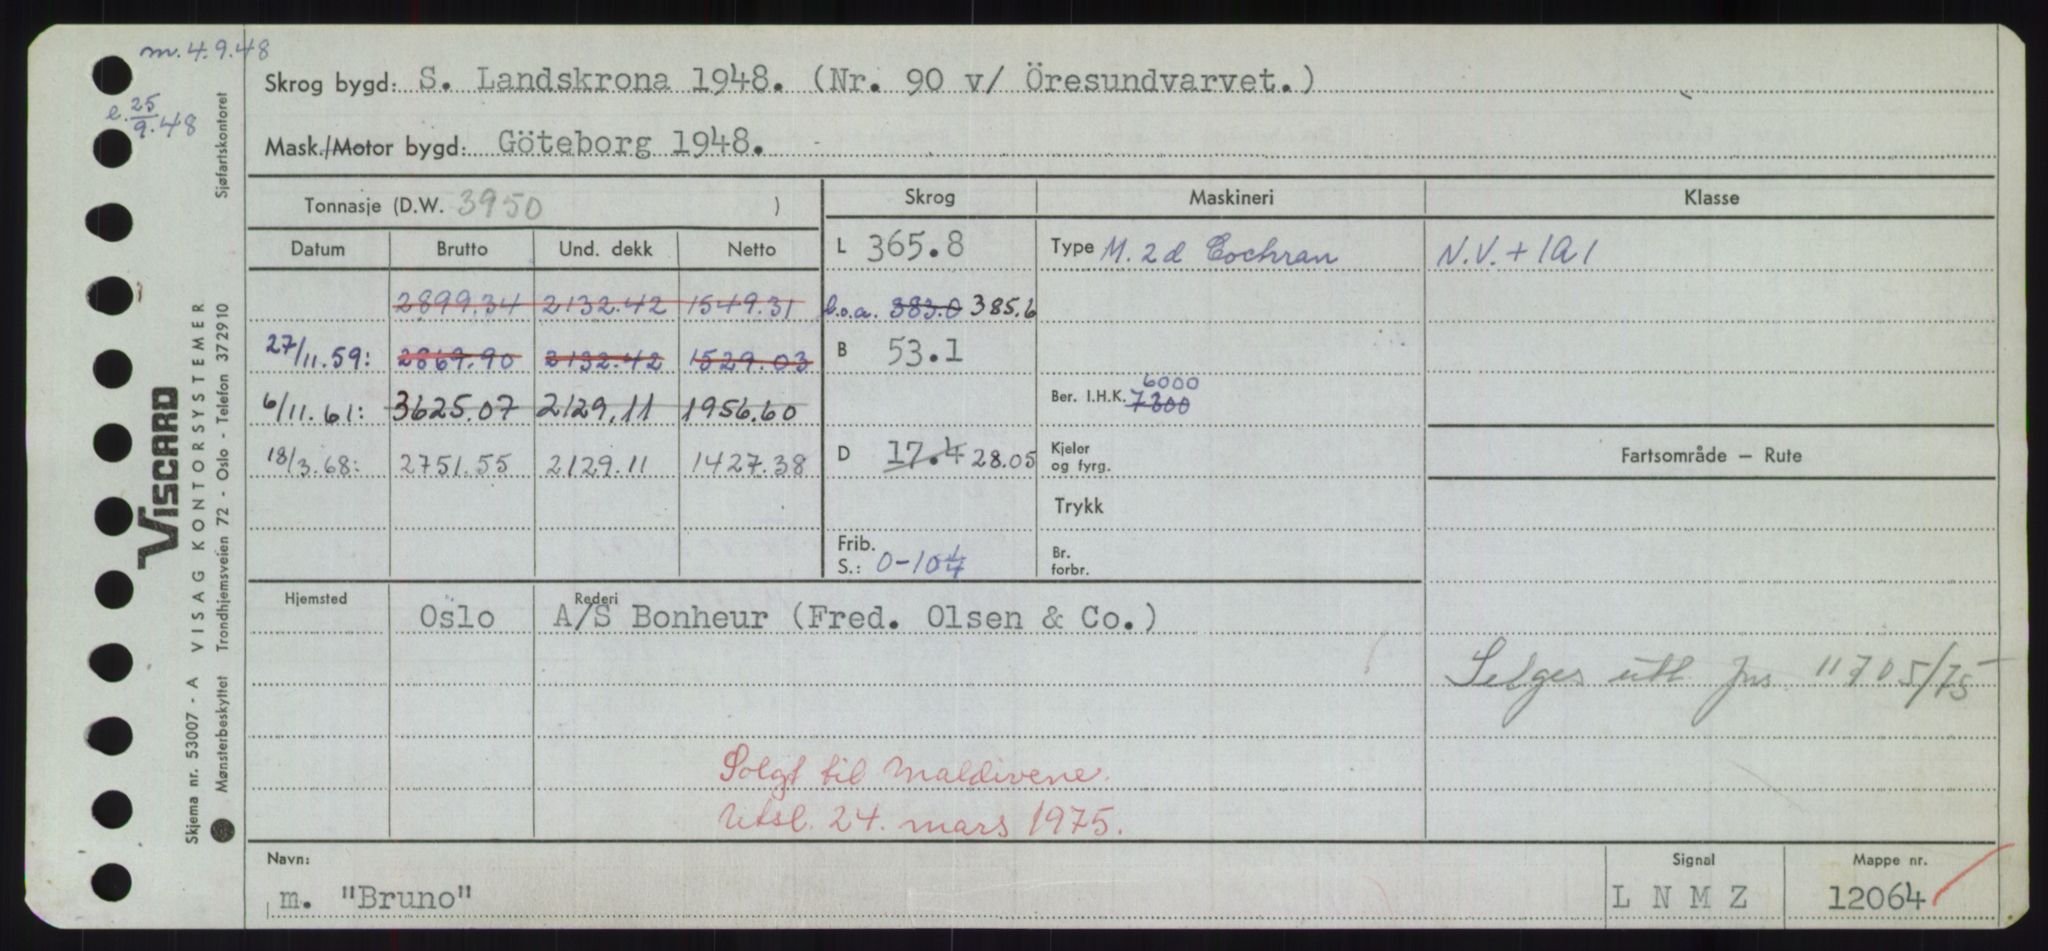 m. 4.9.48
e. 25/9.48
Skrog bygd: S. Landskrona 1948. (Nr. 90 v/ Öresundvarvet.)
Mask./Motor bygd: Göteborg 1948.
Tonnasje (D.W. 3950 )
Skrog Maskineri Klasse
Datum Brutto Und. dekk Netto
L 365.8 Type M. 2d Cochran N.V. + 1A1
2899.34 2132.42 1549.31 l.o.a. 383.0 385.6
27/11.59: 2869.90 2132.42 1529.03 B 53.1
6/11.61: 3625.07 2129.11 1956.60 Ber. I.H.K. 7300 6000
18/3.68: 2751.55 2129.11 1427.38 D 17.4 28.05 Kjeler og fyrg.
Fartsområde – Rute
Trykk
Frib. S.: 0-10¼ Br. forbr.
Hjemsted Rederi
Oslo A/S Bonheur (Fred. Olsen & Co.)
Selges utl jns. 11705/75
Solgt til Maldivene.
Utsl. 24. mars 1975.
Navn: Signal Mappe nr.
m. "Bruno" L N M Z 12064
VISCARD
Skjema nr. 53007 - A VISAG KONTORSYSTEMER
Mønsterbeskyttet Trondhjemsveien 72 - Oslo - Telefon 372910 Sjøfartskontoret